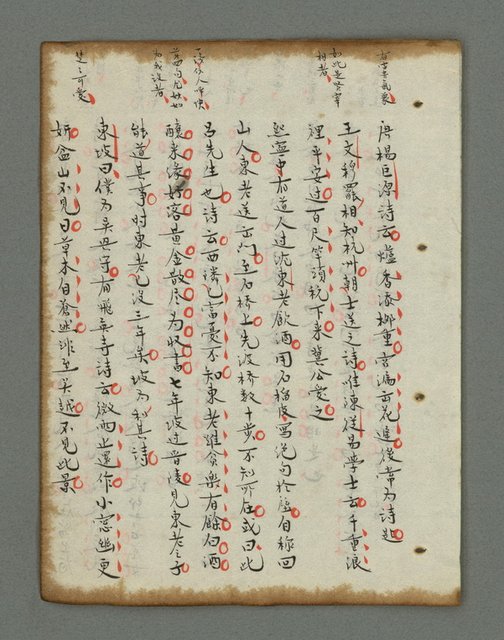 唐楊巨源詩云爐香添柳重宮漏出花遲後常為詩題
王文穆罷相知杭州朝士送之詩唯陳從易學士云千重浪
裡平安過百尺竿頭穩下來冀公愛之
熙寧中有道人過沈東老飲酒用石榴皮寫絕句於壁自稱回
山人東老送出門至石橋上先渡橋數十步不知所在或曰此
呂先生也詩云西隣已富憂不知東老雖貧樂有餘白酒
釀來緣好客黃金散尽為收書七年坡过晉陵見東老之子
能道其事时東老已没三年矣坡為和其詩
東坡曰僕為吳興守有飛英寺詩云微雨止還作小窓幽更
妍盆山不見日草木自蒼然非至吳越不見此景
如此是宰
相者
楚之可愛